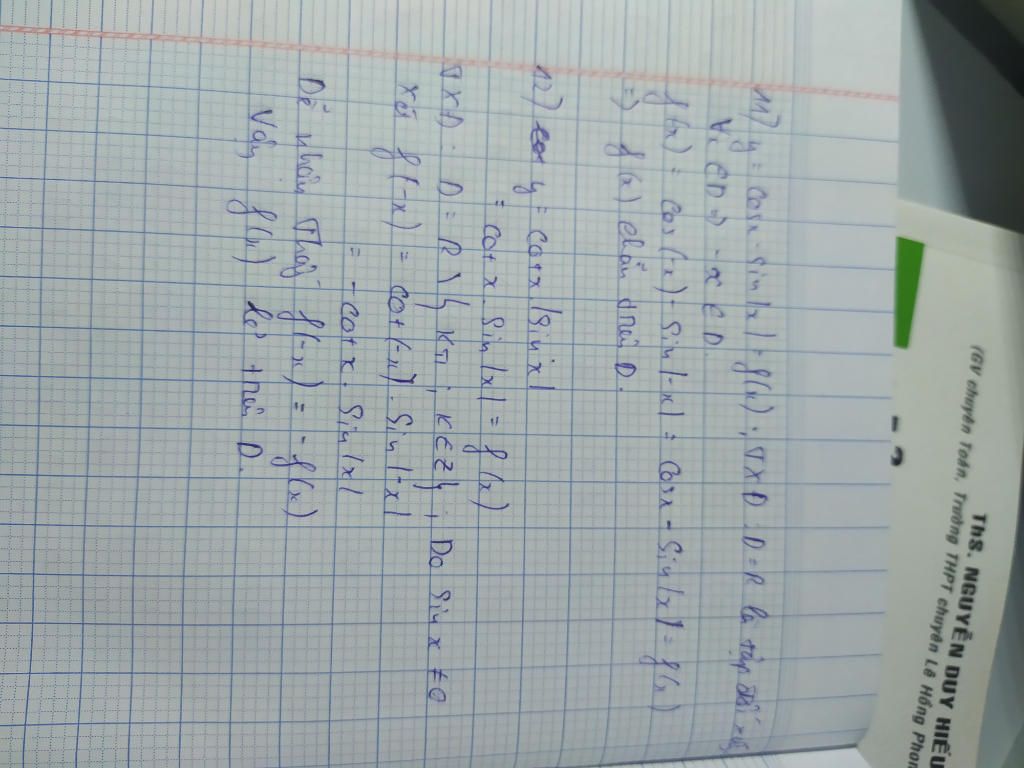 11) y = cosx - sin|x| = f(x) ; TXD : D = R là tập đối xứng
Vì ∈ D => - x ∈ D.
f(x) = cos(x) - sin|-x| = cosx - sin|x| = f(x)
=) f(x) chẵn trên D.
12) y = cotx.|sinx|
= cotx. sin|x| = f(x)
TXD : D = R \ { kπ ; k ∈ Z } ; Do sin x ≠ 0
Xét f(-x) = cot(-x). sin|-x|
= - cotx. sin|x|
Dễ nhận thấy f(-x) = - f(x)
Vậy f(x) lẻ trên D.
ThS. NGUYỄN DUY HIẾU
(GV chuyên Toán, Trường THPT chuyên Lê Hồng Phon